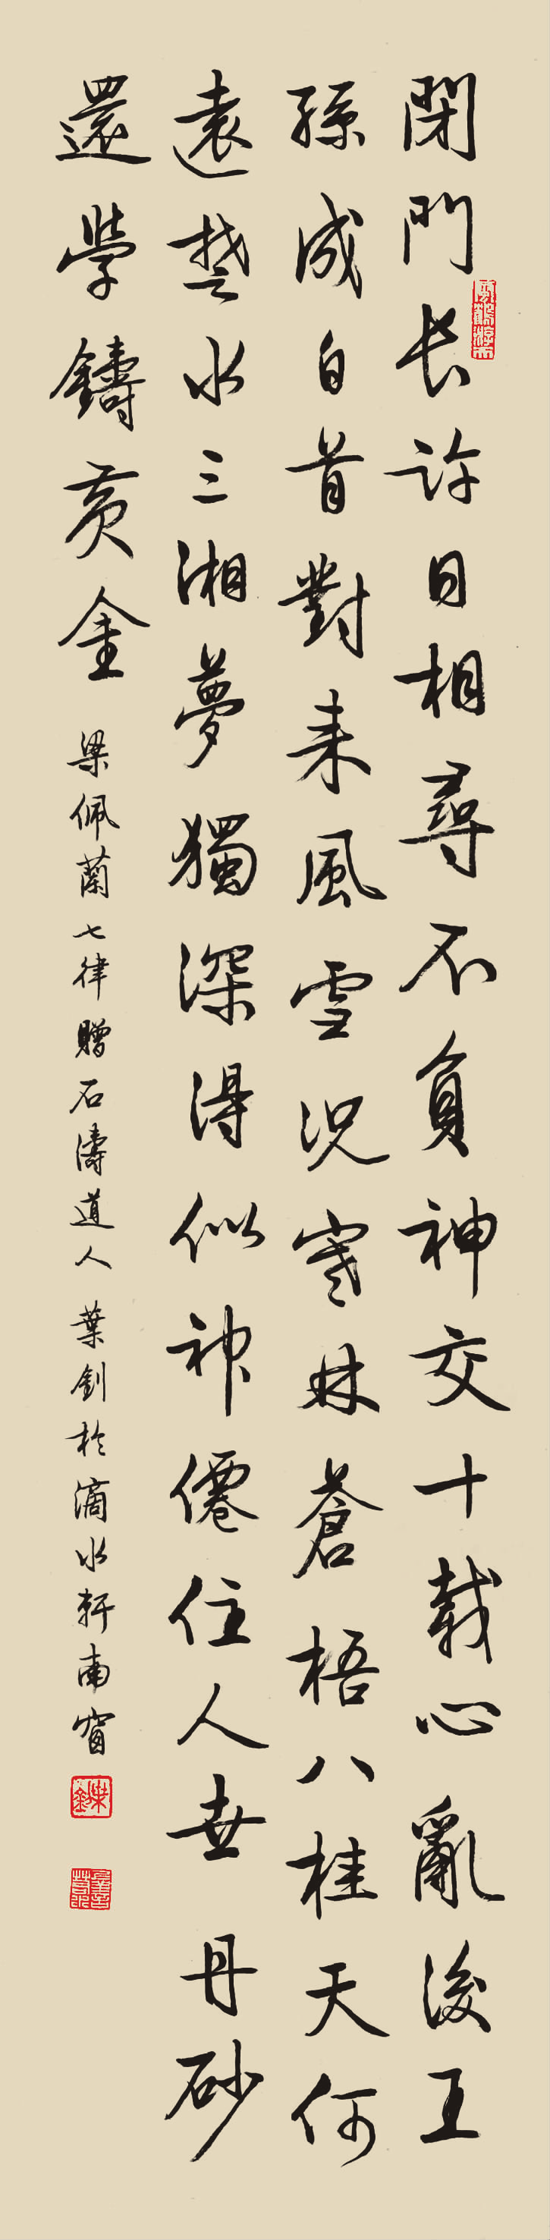 閉門長許日相尋不負神交十載心亂後王
孫成白首對來風雪況寒林蒼梧八桂天何
遠楚水三湘夢獨深得似神僊住人世丹砂
還學鑄黃金
梁佩蘭七律贈石濤道人 葉釗於滴水軒南窗